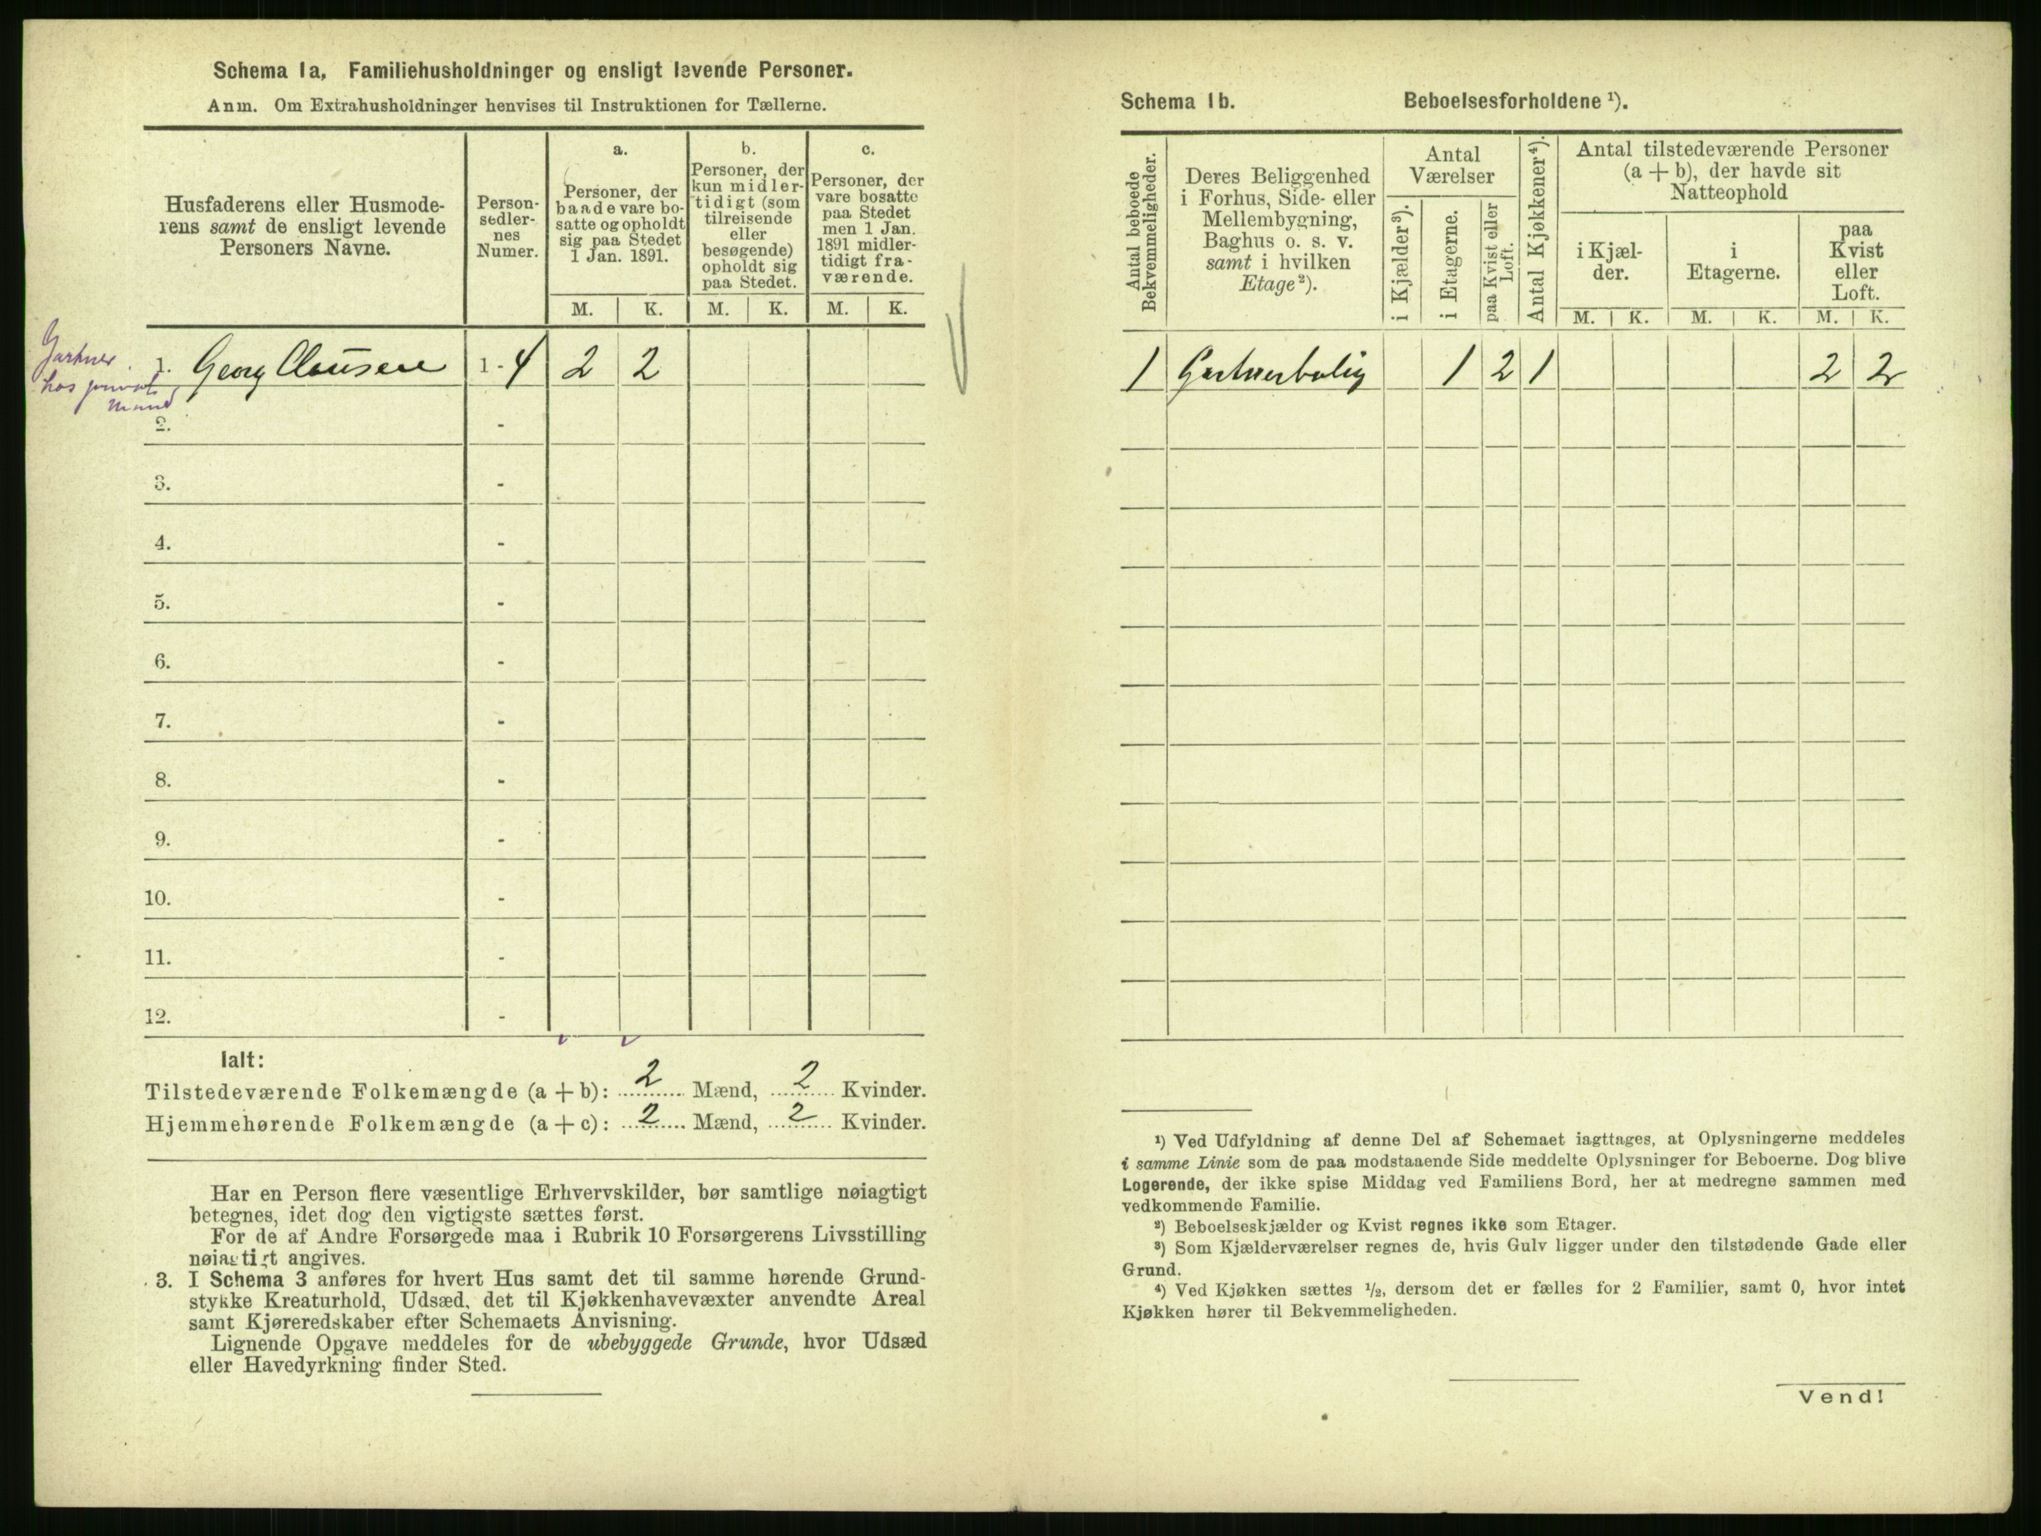 Schema 1a, Familiehusholdninger og ensligt levende Personer.
Anm. Om Extrahusholdninger henvises til Instruktionen for Tællerne.
Husfaderens eller Husmode-
rens samt de ensligt levende
Personers Navne.
Person-
sedler-
nes
Numer.
a.
Personer, der
baade vare bo-
satte og opholdt
sig paa Stedet
1 Jan. 1891.
b.
Personer, der
kun midler-
tidigt (som
tilreisende
eller
besøgende)
opholdt sig
paa Stedet.
c.
Personer, der
vare bosatte
paa Stedet
men 1 Jan.
1891 midler-
tidigt fra-
værende.
M. K. M. K. M. K.
Gartner
hos privat
mand
1. Georg Clausen 1 - 4 2 2
2. -
3. -
4. -
5. -
6. -
7. -
8. -
9. -
10. -
11. -
12. -
Ialt:
Tilstedeværende Folkemængde (a + b): 2 Mænd, 2 Kvinder.
Hjemmehørende Folkemængde (a + c): 2 Mænd, 2 Kvinder.
Har en Person flere væsentlige Erhvervskilder, bør samtlige nøiagtigt
betegnes, idet dog den vigtigste sættes først.
For de af Andre Forsørgede maa i Rubrik 10 Forsørgerens Livsstilling
nøiagtigt angives.
3. I Schema 3 anføres for hvert Hus samt det til samme hørende Grund-
stykke Kreaturhold, Udsæd, det til Kjøkkenhavevæxter anvendte Areal
samt Kjøreredskaber efter Schemaets Anvisning.
Lignende Opgave meddeles for de ubebyggede Grunde, hvor Udsæd
eller Havedyrkning finder Sted.
Schema 1b. Beboelsesforholdene ¹).
Antal beboede
Bekvemmeligheder.
Deres Beliggenhed
i Forhus, Side- eller
Mellembygning,
Baghus o. s. v.
samt i hvilken
Etage²).
Antal
Værelser
i Kjælder³).
i Etagerne.
paa Kvist eller
Loft.
Antal Kjøkkener⁴).
Antal tilstedeværende Personer
(a + b), der havde sit
Natteophold
i Kjæl-
der.
i
Etagerne.
paa
Kvist
eller
Loft.
M. K. M. K. M. K.
1 Gartnerbolig 1 2 1 2 2
¹) Ved Udfyldning af denne Del af Schemaet iagttages, at Oplysningerne meddeles
i samme Linie som de paa modstaaende Side meddelte Oplysninger for Beboerne. Dog blive
Logerende, der ikke spise Middag ved Familiens Bord, her at medregne sammen med
vedkommende Familie.
²) Beboelseskjælder og Kvist regnes ikke som Etager.
³) Som Kjælderværelser regnes de, hvis Gulv ligger under den tilstødende Gade eller
Grund.
⁴) Ved Kjøkken sættes ½, dersom det er fælles for 2 Familier, samt 0, hvor intet
Kjøkken hører til Bekvemmeligheden.
Vend!